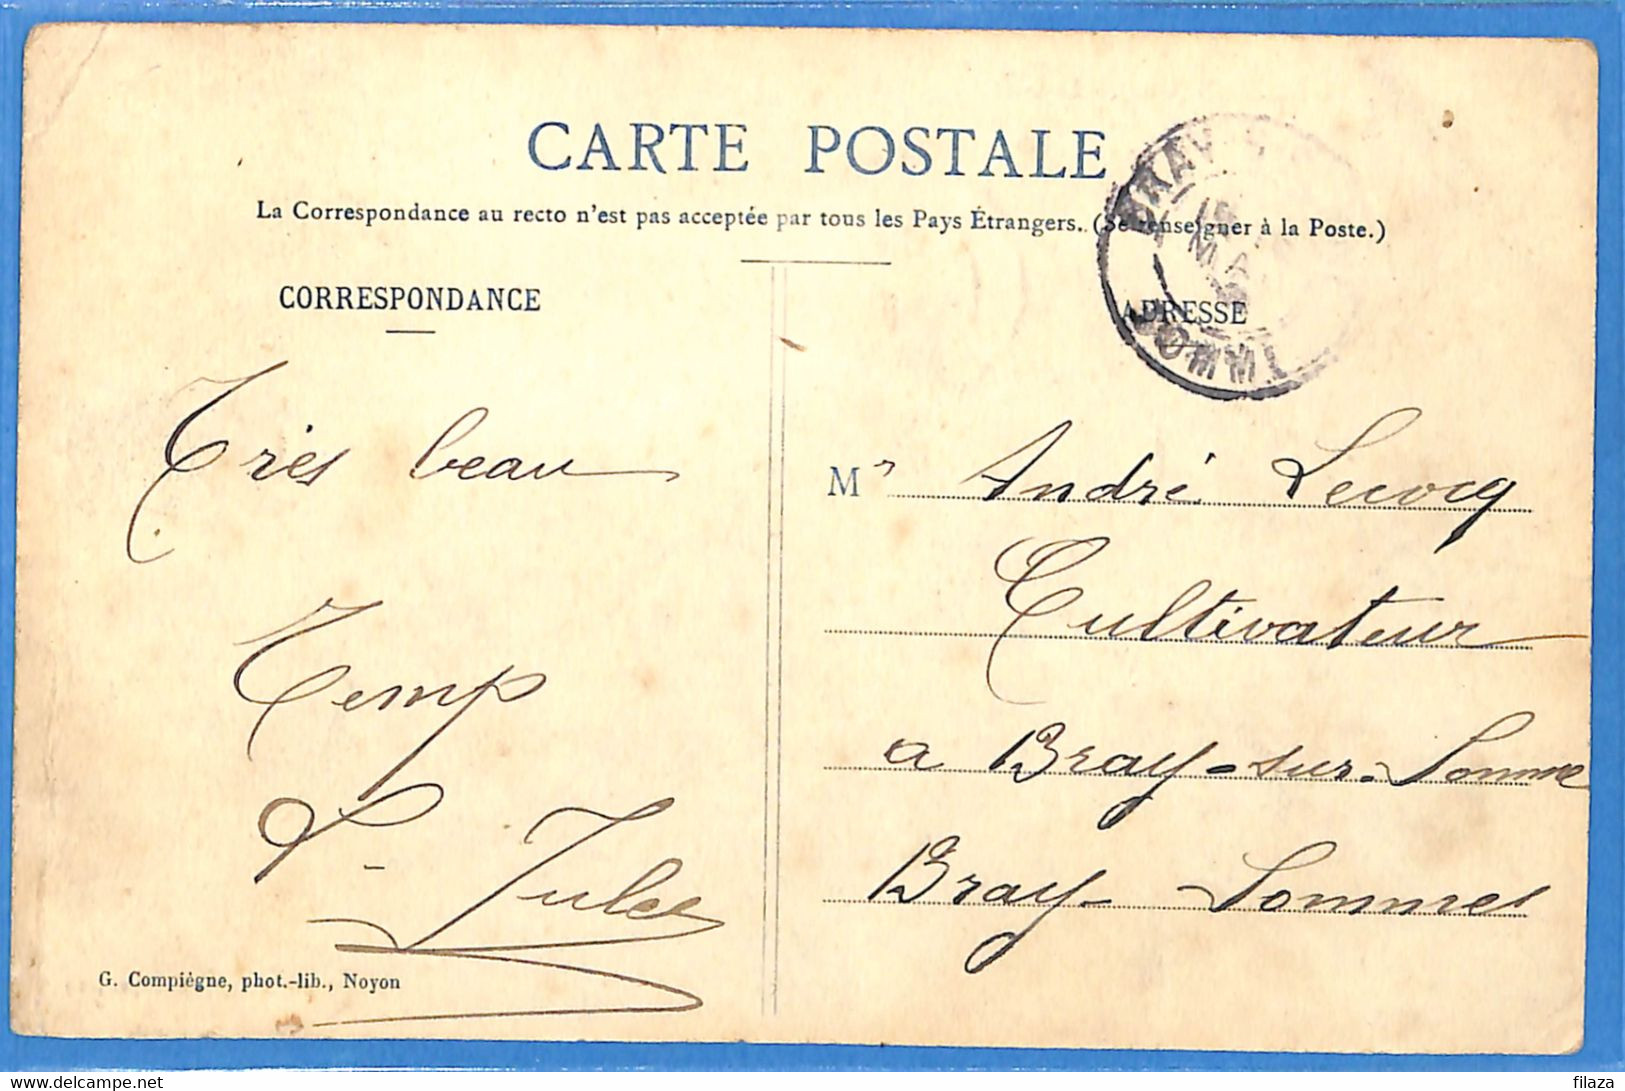 CARTE POSTALE
La Correspondance au recto n'est pas acceptée par tous les Pays Étrangers. (Se renseigner à la Poste.)
CORRESPONDANCE
Très beau
Temp
L. Jules
G. Compiègne, phot.-lib., Noyon
BRAY-S
15
MA
SOMME
ADRESSE
Mr André Lecocq
Cultivateur
a Bray-sur-Somme
Bray-Sommes
filaza
www.delcampe.net